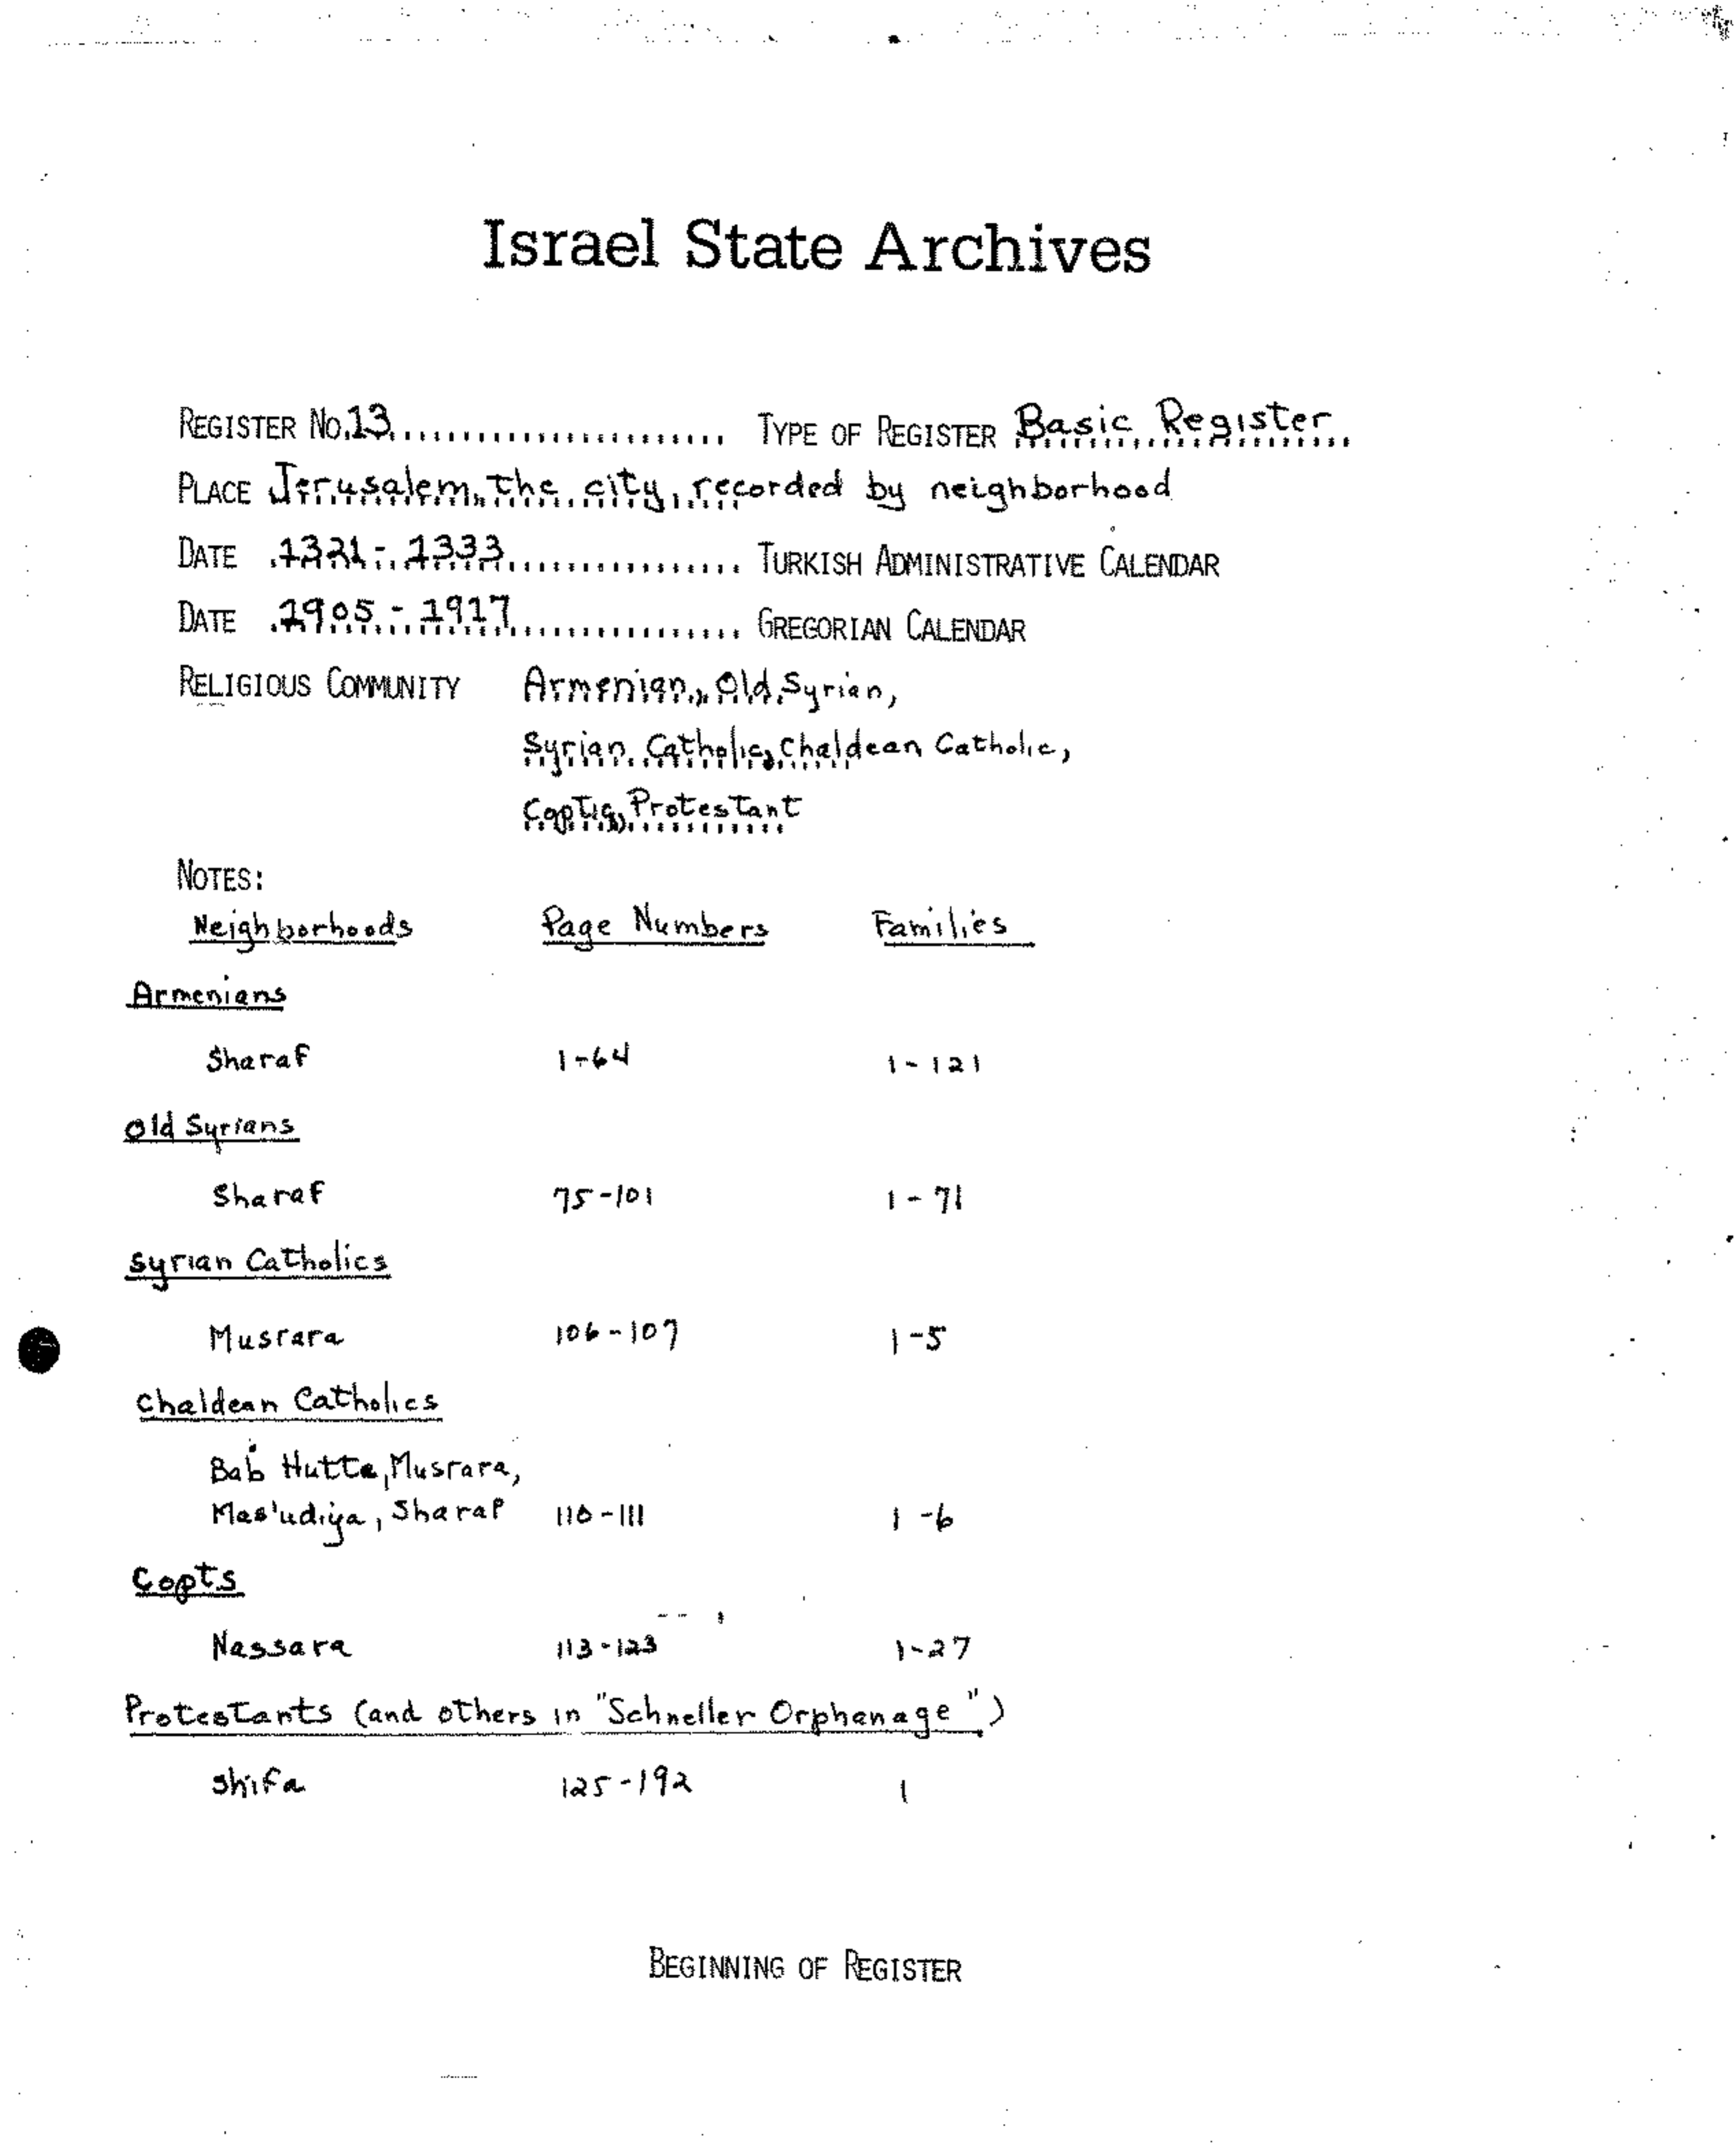 Israel State Archives
REGISTER NO. 13 TYPE OF REGISTER Basic Register
PLACE Jerusalem, the city, recorded by neighborhood
DATE 1321 - 1333 TURKISH ADMINISTRATIVE CALENDAR
DATE 1905 - 1917 GREGORIAN CALENDAR
RELIGIOUS COMMUNITY Armenian, Old Syrian,
Syrian Catholic, Chaldean Catholic,
Coptic, Protestant
NOTES:
Neighborhoods Page Numbers Families
Armenians
Sharaf 1-64 1-121
Old Syrians
Sharaf 75-101 1-71
Syrian Catholics
Musrara 106-107 1-5
Chaldean Catholics
Bab Hutta, Musrara,
Mas'udiya, Sharaf 110-111 1-6
Copts
Nassara 113-123 1-27
Protestants (and others in "Schneller Orphanage")
Shifa 125-192 1
BEGINNING OF REGISTER